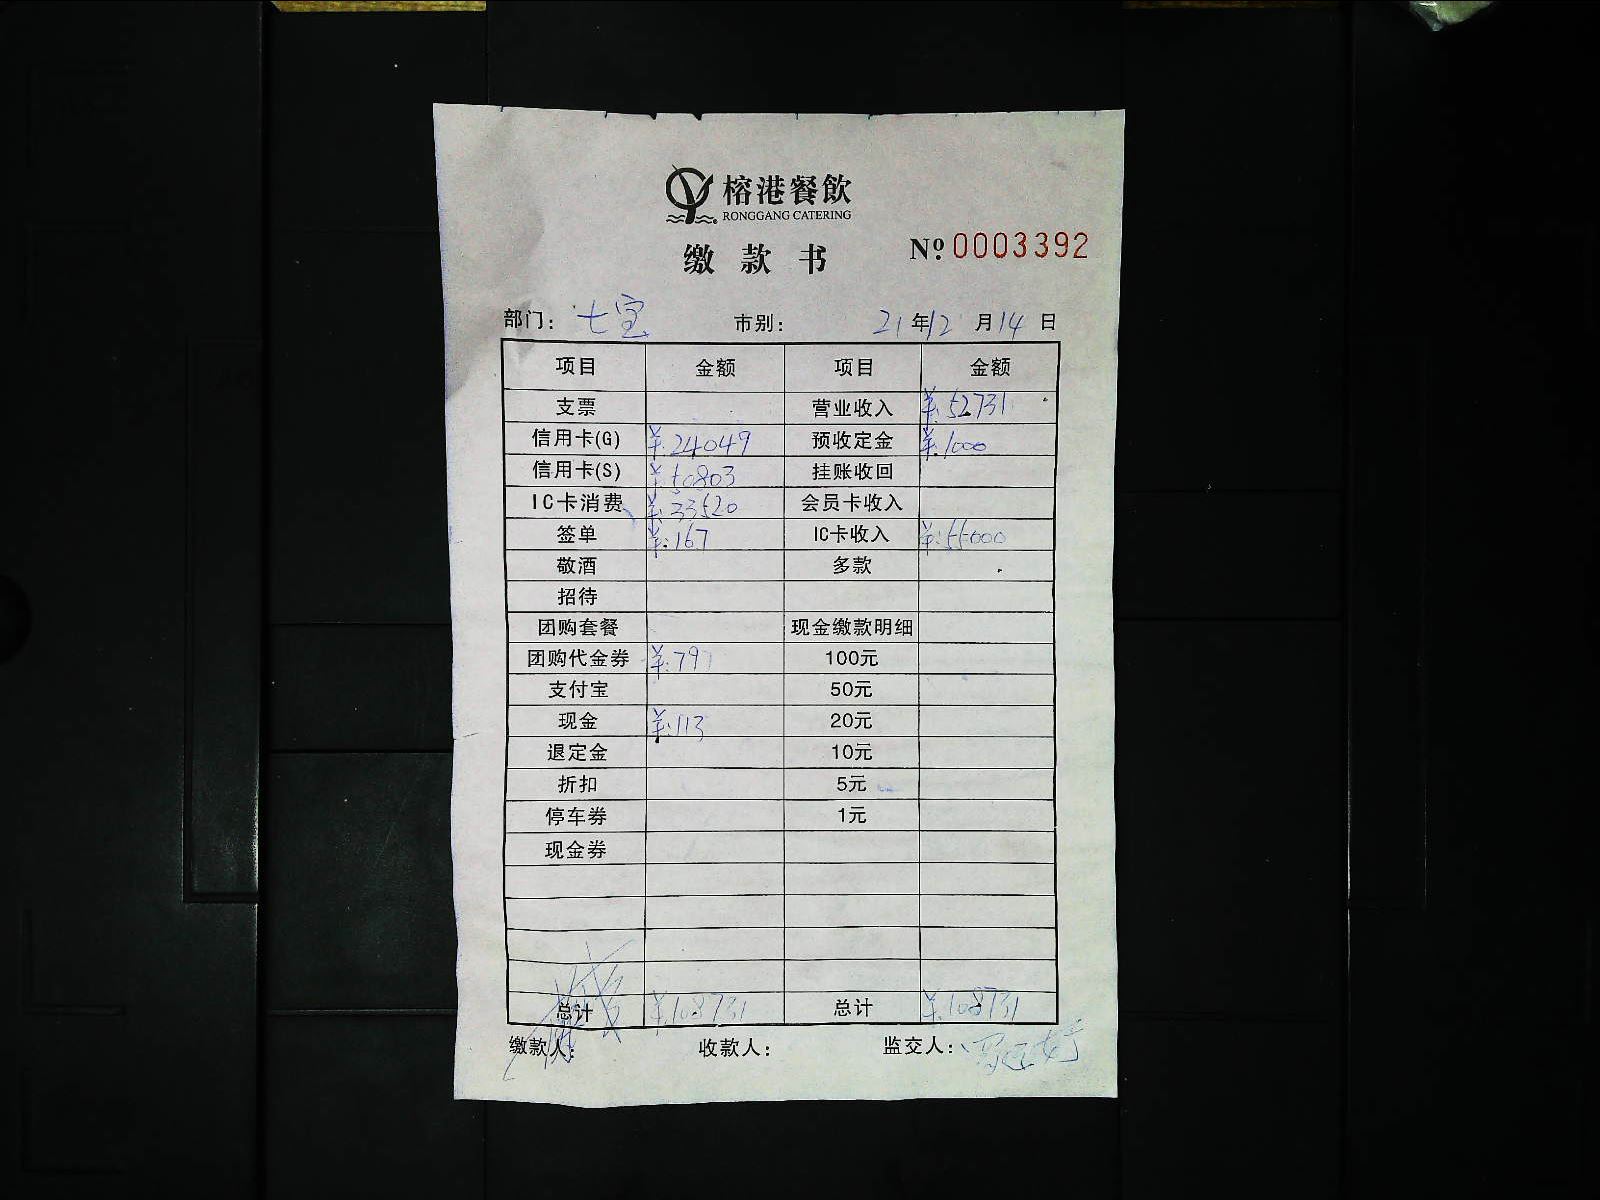 榕港餐飲
RONGGANG CATERING
缴款书 Nº 0003392
部门: 七宝 市别: 21 年 12 月 14 日
项目 金额 项目 金额
支票 营业收入 ¥:52731
信用卡(G) ¥:24049 预收定金 ¥:1000
信用卡(S) ¥:50803 挂账收回
IC卡消费 ¥:33520 会员卡收入
签单 ¥:167 IC卡收入 ¥:55000
敬酒 多款
招待
团购套餐 现金缴款明细
团购代金券 ¥:79 100元
支付宝 50元
现金 ¥:113 20元
退定金 10元
折扣 5元
停车券 1元
现金券
总计 ¥:108731 总计 ¥:108731
缴款人: 收款人: 监交人: